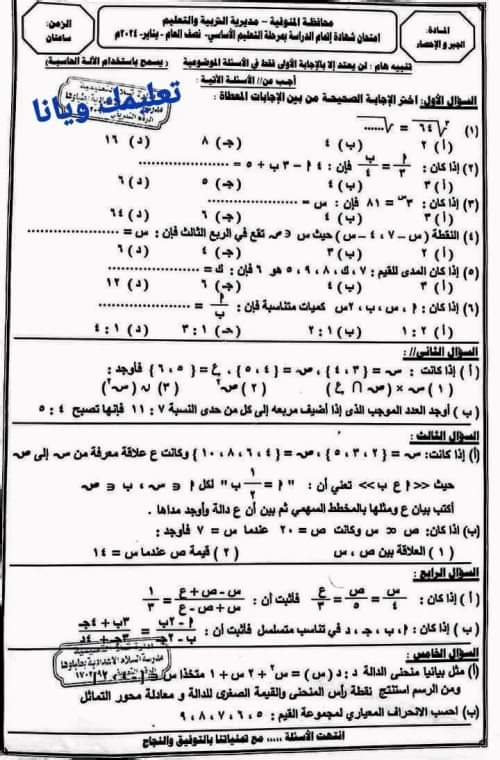 محافظة المنوفية – مديرية التربية والتعليم
امتحان شهادة إتمام الدراسة بمرحلة التعليم الأساسي- نصف العام - يناير- ٢٠٢٤م
المادة:
الجبر و الإحصاء
الزمن:
ساعتان
تنبيه هام : لن يعتد إلا بالإجابة الأولى فقط في الأسئلة الموضوعية ( يسمح باستخدام الآلة الحاسبة)
أجب عن// الأسئلة الآتية :
تعليمك ويانا
السؤال الأول: اختر الإجابة الصحيحة من بين الإجابات المعطاة :
(١) √٦٤ = ∛......
(أ) ٢ (ب) ٤ (جـ) ٨ (د) ١٦
(٢) إذا كان : أ/٣ = ب/٤ فإن : ٤ أ – ٣ ب + ٥ = ..................
(أ) ٣ (ب) ٤ (جـ) ٥ (د) ٦
(٣) إذا كان : ٣^س = ٨١ فإن : س = ..................
(أ) ٣ (ب) ٤ (جـ) ٦ (د) ٦٤
(٤) النقطة ( س – ٧ ، ٤ – س ) حيث س ∈ ص تقع في الربع الثالث فإن : س = ..................
(أ) ٢ (ب) ٣ (جـ) ٤ (د) ٦
(٥) إذا كان المدى للقيم : ٧ ، ك ، ٨ ، ٩ ، ٥ هو ٦ فإن : ك = ..................
(أ) ٣ (ب) ٤ (جـ) ٦ (د) ١٢
(٦) إذا كان : أ ، س ، ب ، ٢س كميات متناسبة فإن : أ/ب = ..................
(أ) ٢ : ١ (ب) ١ : ٢ (جـ) ١ : ٣ (د) ١ : ٤
السؤال الثانى// :
( أ ) إذا كانت : س = { ٣ ، ٤ } ، ص = { ٤ ، ٥ } ، ع = { ٥ ، ٦ } فأوجد :
( ١ ) س × ( ص ∩ ع ) ( ٢ ) ص٢ ( ٣ ) ن ( س٢ )
( ب ) أوجد العدد الموجب الذى إذا أضيف مربعه إلى كل من حدى النسبة ٧ : ١١ فإنها تصبح ٤ : ٥
السؤال الثالث :
(أ) إذا كانت: س = { ٢ ، ٣ ، ٥ } ، ص = { ٤ ، ٦ ، ٨ ، ١٠ } وكانت ع علاقة معرفة من س إلى ص
حيث << أ ع ب >> تعني أن : " أ = ١/٢ ب " لكل أ ∈ س ، ب ∈ ص
أكتب بيان ع ومثلها بالمخطط السهمي ثم بين أن ع دالة وأوجد مداها .
(ب) إذا كان: ص ∝ س وكانت ص = ٢٠ عندما س = ٧ فأوجد :
( ١ ) العلاقة بين ص ، س ( ٢ ) قيمة ص عندما س = ١٤
السؤال الرابع :
( أ ) إذا كان : س/٤ = ص/٥ = ع/٣ فأثبت أن : (س – ص + ع)/(س + ص – ع) = ١/٣
( ب ) إذا كان : أ ، ب ، جـ ، د في تناسب متسلسل فأثبت أن : (أ – ٢ب)/(ب – ٢جـ) = (٣ب + ٤جـ)/(٣جـ + ٤د)
السؤال الخامس :
(أ) مثل بيانيا منحنى الدالة د : د ( س ) = س٢ + ٢س + ١ متخذا س
ومن الرسم استنتج نقطة رأس المنحنى والقيمة الصغرى للدالة و معادلة محور التماثل
(ب) احسب الانحراف المعياري لمجموعة القيم : ٥ ، ٦ ، ٧ ، ٨ ، ٩
انتهت الأسئلة ..... مع تمنياتنا بالتوفيق والنجاح